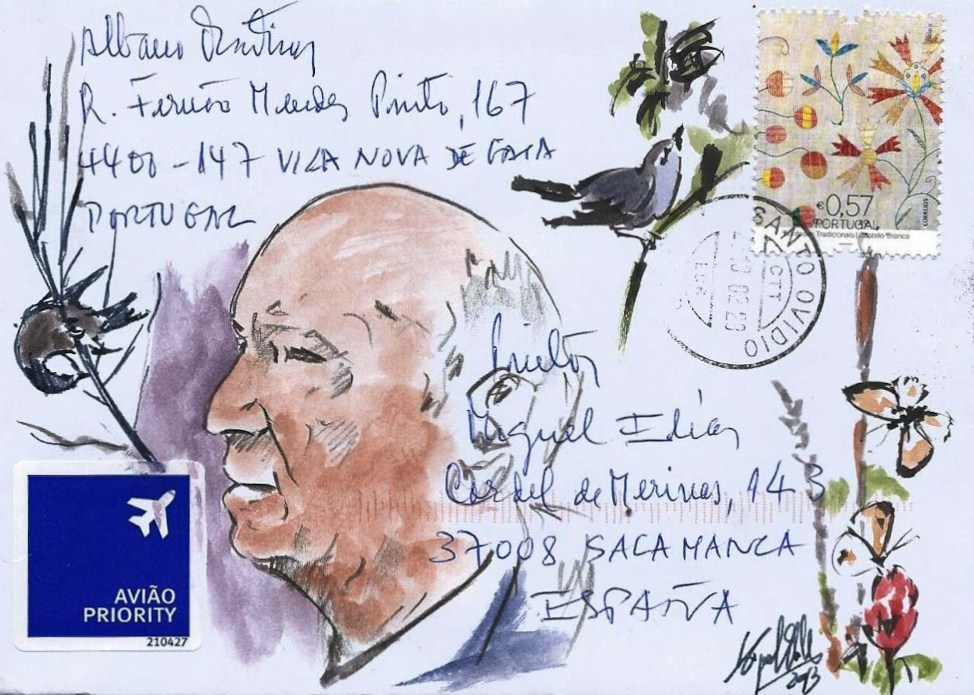 Albano Martins
R. Fernão Mendes Pinto, 167
4400-147 VILA NOVA DE GAIA
PORTUGAL
€0,57
PORTUGAL
Tradicionais | Castelo Branco
CORREIOS
SANTO OVIDIO
CTT
Pintor
Miguel Elías
Cordel de Merinas, 14 3
37008 SALAMANCA
ESPAÑA
AVIÃO
PRIORITY
210427
2013